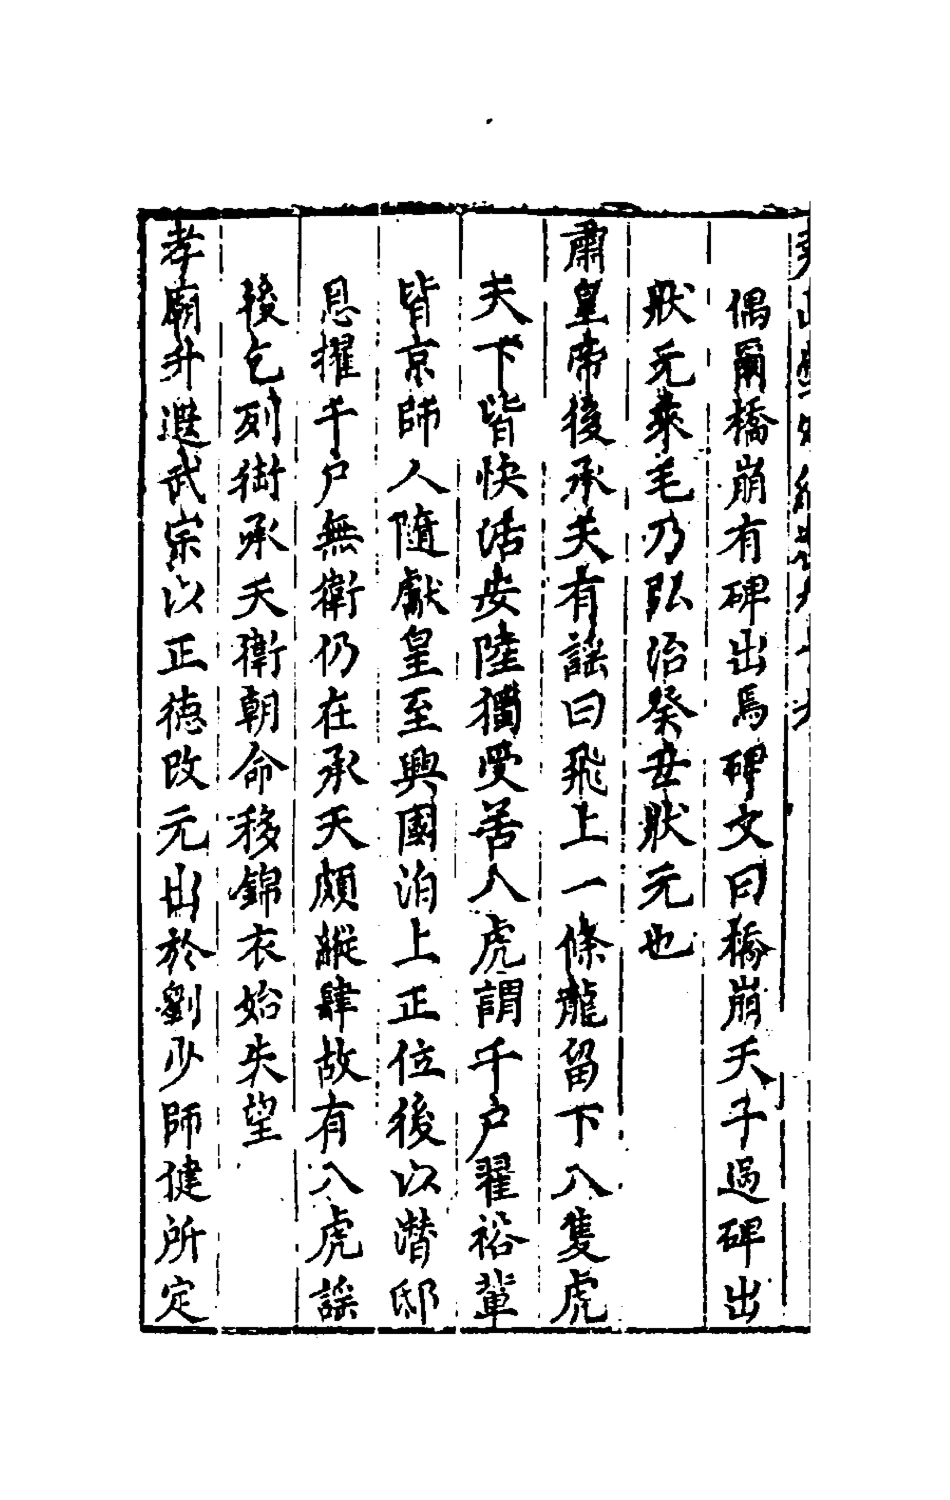 偶爾橋崩有碑出焉碑文曰橋崩天子過碑出
狀元乘毛乃弘治癸丑狀元也
肅皇帝後承天有謡曰飛上一條龍留下八隻虎
天下皆快活安陸獨受苦八虎謂千户翟裕輩
皆京師人隨獻皇至興國洎上正位後以潜邸
恩擢千户無衛仍在承天頗縱肆故有八虎謡
後乞列銜承天衛朝命移錦衣始失望
孝廟升遐武宗以正德改元出於劉少師健所定